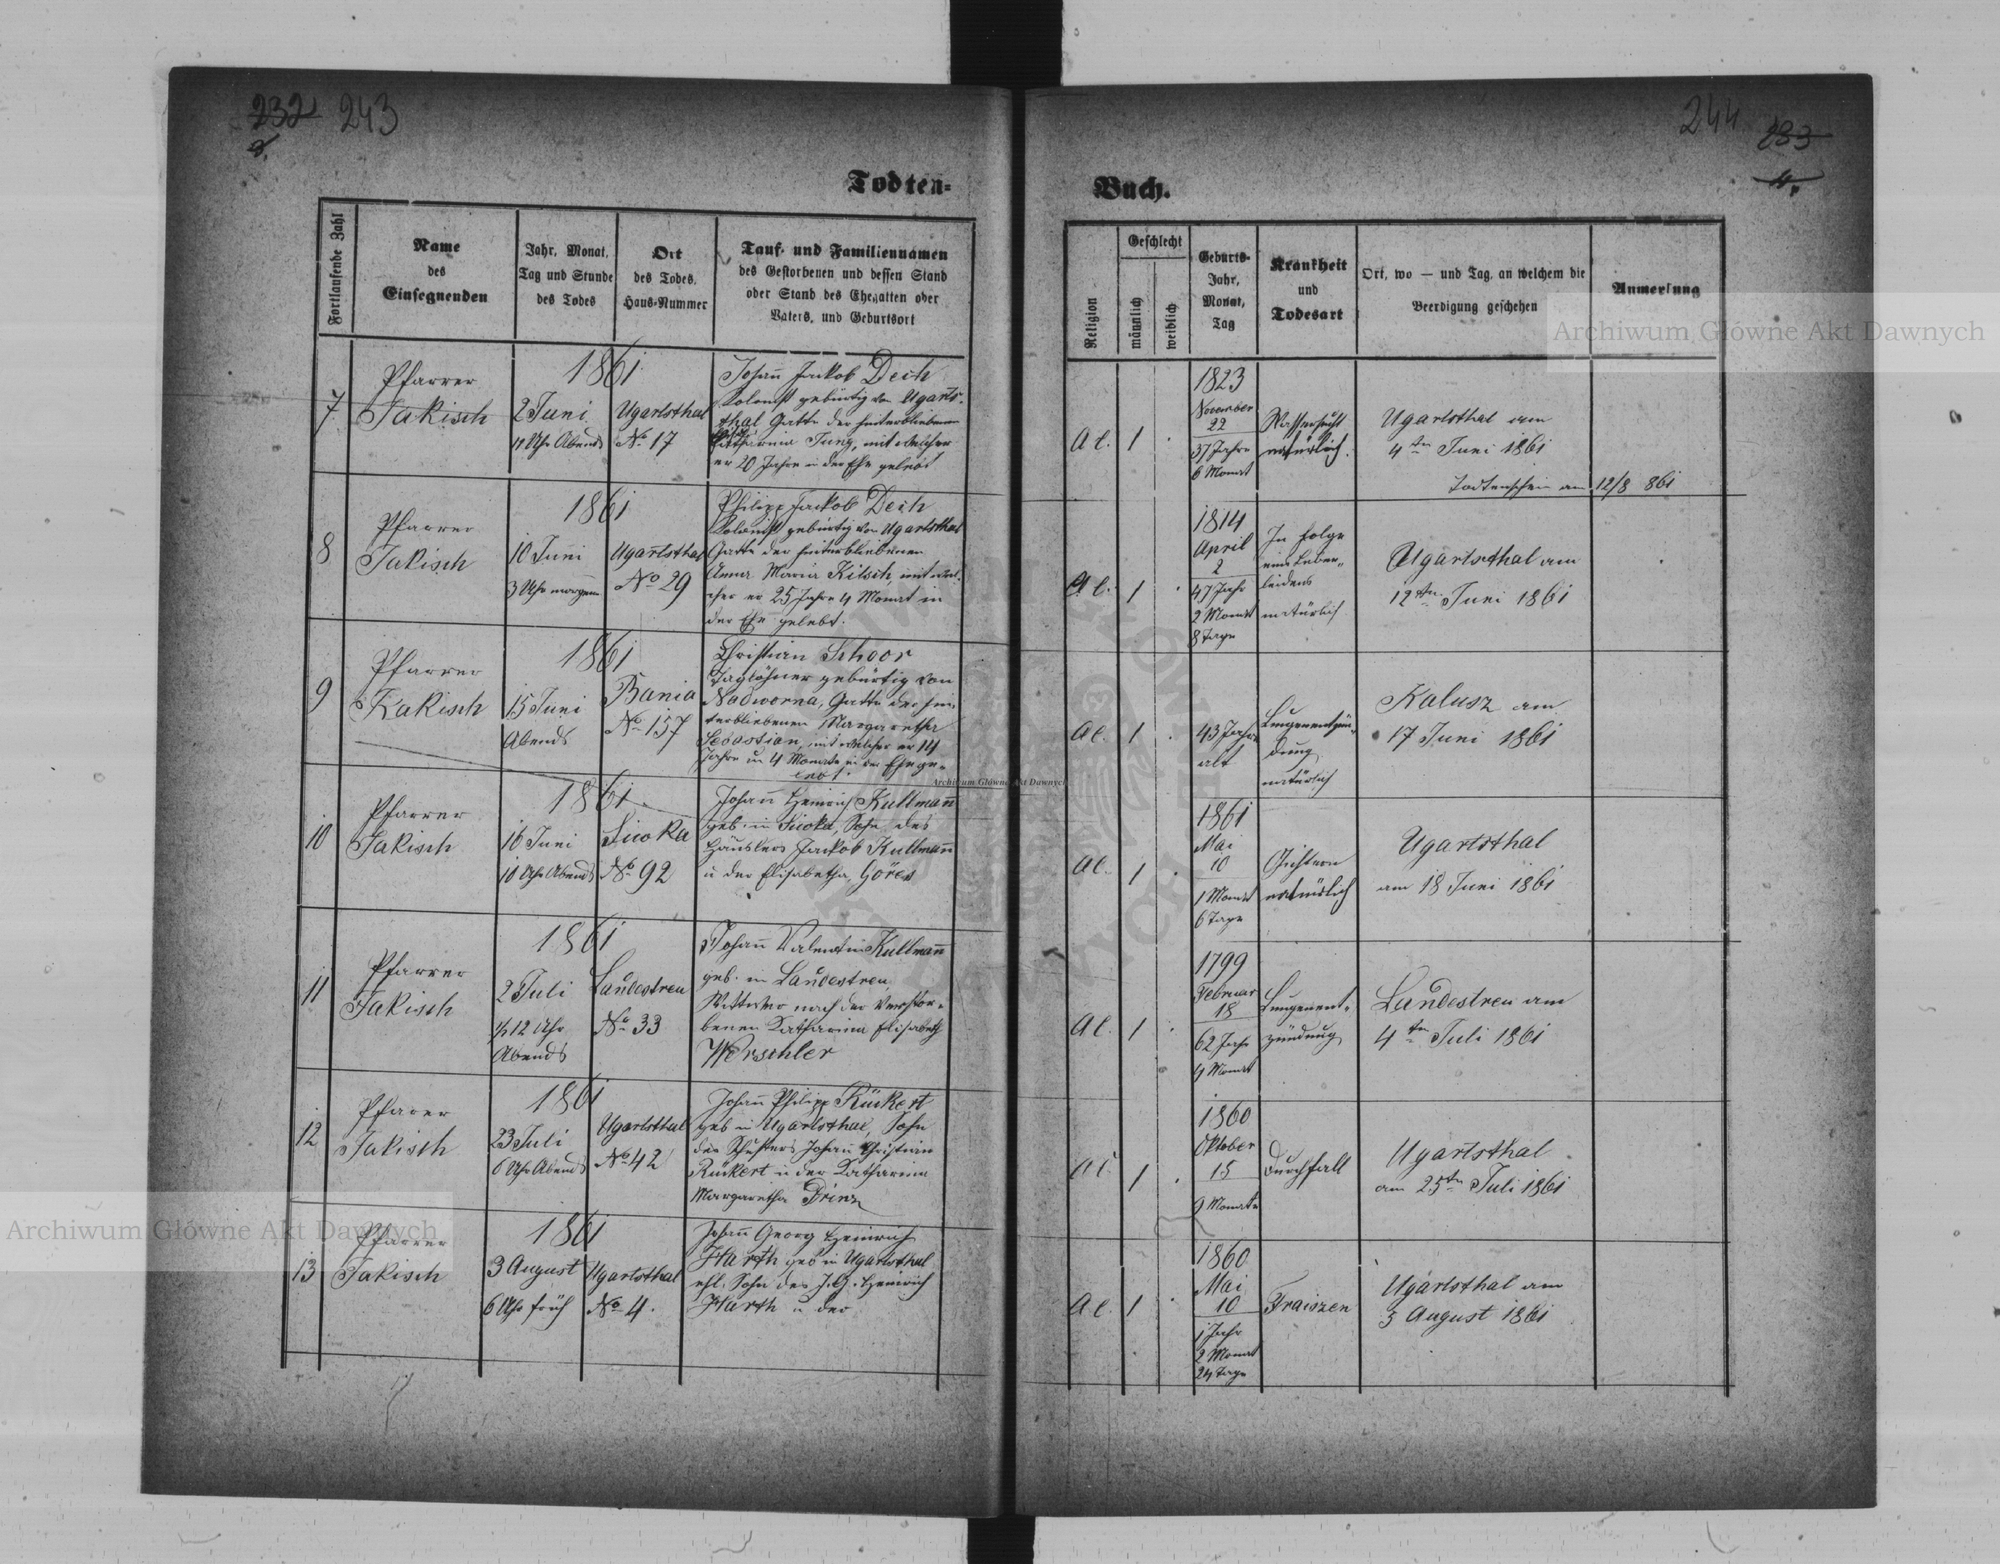 232 243
Todten-
Fortlaufende Zahl
Name
des
Einsegnenden
Jahr, Monat,
Tag und Stunde
des Todes
Ort
des Todes,
Haus-Nummer
Tauf- und Familiennamen
des Gestorbenen und dessen Stand
oder Stand des Ehegatten oder
Vaters, und Geburtsort
7
Pfarrer
Jakisch
1861
2 Juni
11 Uhr Abends
Ugartsthal
No 17
Johañ Jackob Dech
Kolonist gebürtig von Ugarts-
thal Gatte der hinterbliebenen
Katharina Jung, mit welcher
er 20 Jahre in der Ehe gelebt
8
Pfarrer
Jakisch
1861
10 Juni
3 Uhr morgens
Ugartsthal
No 29
Philipp Jackob Dech
Kolonist gebürtig von Ugartsthal
Gatte der hinterbliebenen
Anna Maria Kilsch, mit wel-
cher er 25 Jahre 4 Monat in
der Ehe gelebt.
9
Pfarrer
Jakisch
1861
15 Juni
Abends
Bania
No 157
Christian Schoor
Taglöhner gebürtig von
Nadworna, Gatte der hin-
terbliebenen Margaretha
Sebastian, mit welcher er 14
Jahre u 4 Monate in der Ehe ge-
lebt.
10
Pfarrer
Jakisch
1861
16 Juni
10 Uhr Abends
Siwka
No 92
Johañ Heinrich Kullmañ
geb. in Siwka, Sohn des
Häuslers Jackob Kullmañ
u der Elisabetha, Göres
11
Pfarrer
Jakisch
1861
2 Juli
½ 12 Uhr
Abends
Landestreu
No 33
Johañ Valentin Kullmañ
geb. in Landestreu,
Wittwer nach der verstor-
benen Katharina Elisabeth
Werschler
12
Pfarer
Jakisch
1861
23 Juli
6 Uhr Abends
Ugartsthal
No 42
Johañ Philipp Rückert
geb in Ugartsthal, Sohn
des Schusters Johañ Christian
Rückert u der Katharina
Margaretha Prinz
13
Pfarrer
Jakisch
1861
3 August
6 Uhr früh
Ugartsthal
No 4.
Johañ Georg Heinrich
Harth geb in Ugartsthal
ehl. Sohn des J. G. Heinrich
Harth u der
244 233
Buch.
Religion
Geschlecht
männlich
weiblich
Geburts-
Jahr,
Monat,
Tag
Krankheit
und
Todesart
Ort, wo — und Tag, an welchem die
Beerdigung geschehen
Anmerkung
A C.
1
1823
November
22
37 Jahre
6 Monat
Wassersucht
natürlich.
Ugartsthal am
4ten Juni 1861
Todtenschein am 12/8 861
A C.
1
1814
April
2
47 Jahr
2 Monat
8 Tage
In Folge
eines Leber-
leidens
natürlich
Ugartsthal am
12ten Juni 1861
A C.
1
43 Jahre
alt
Lungenentzün-
dung
natürlich
Kalusz am
17 Juni 1861
A C.
1
1861
Mai
10
1 Monat
6 Tage
Gichtern
natürlich
Ugartsthal
am 18 Juni 1861
A C.
1
1799
Februar
18
62 Jahr
4 Monat
Lungenent-
zündung
Landestreu am
4ten Juli 1861
A C.
1
1860
Oktober
15
9 Monate
Durchfall
Ugartsthal
am 25ten Juli 1861
A C.
1
1860
Mai
10
1 Jahr
2 Monat
24 Tage
Fraiszen
Ugartsthal am
5 August 1861
Archiwum Główne Akt Dawnych
Archiwum Główne Akt Dawnych
Archiwum Główne Akt Dawnych